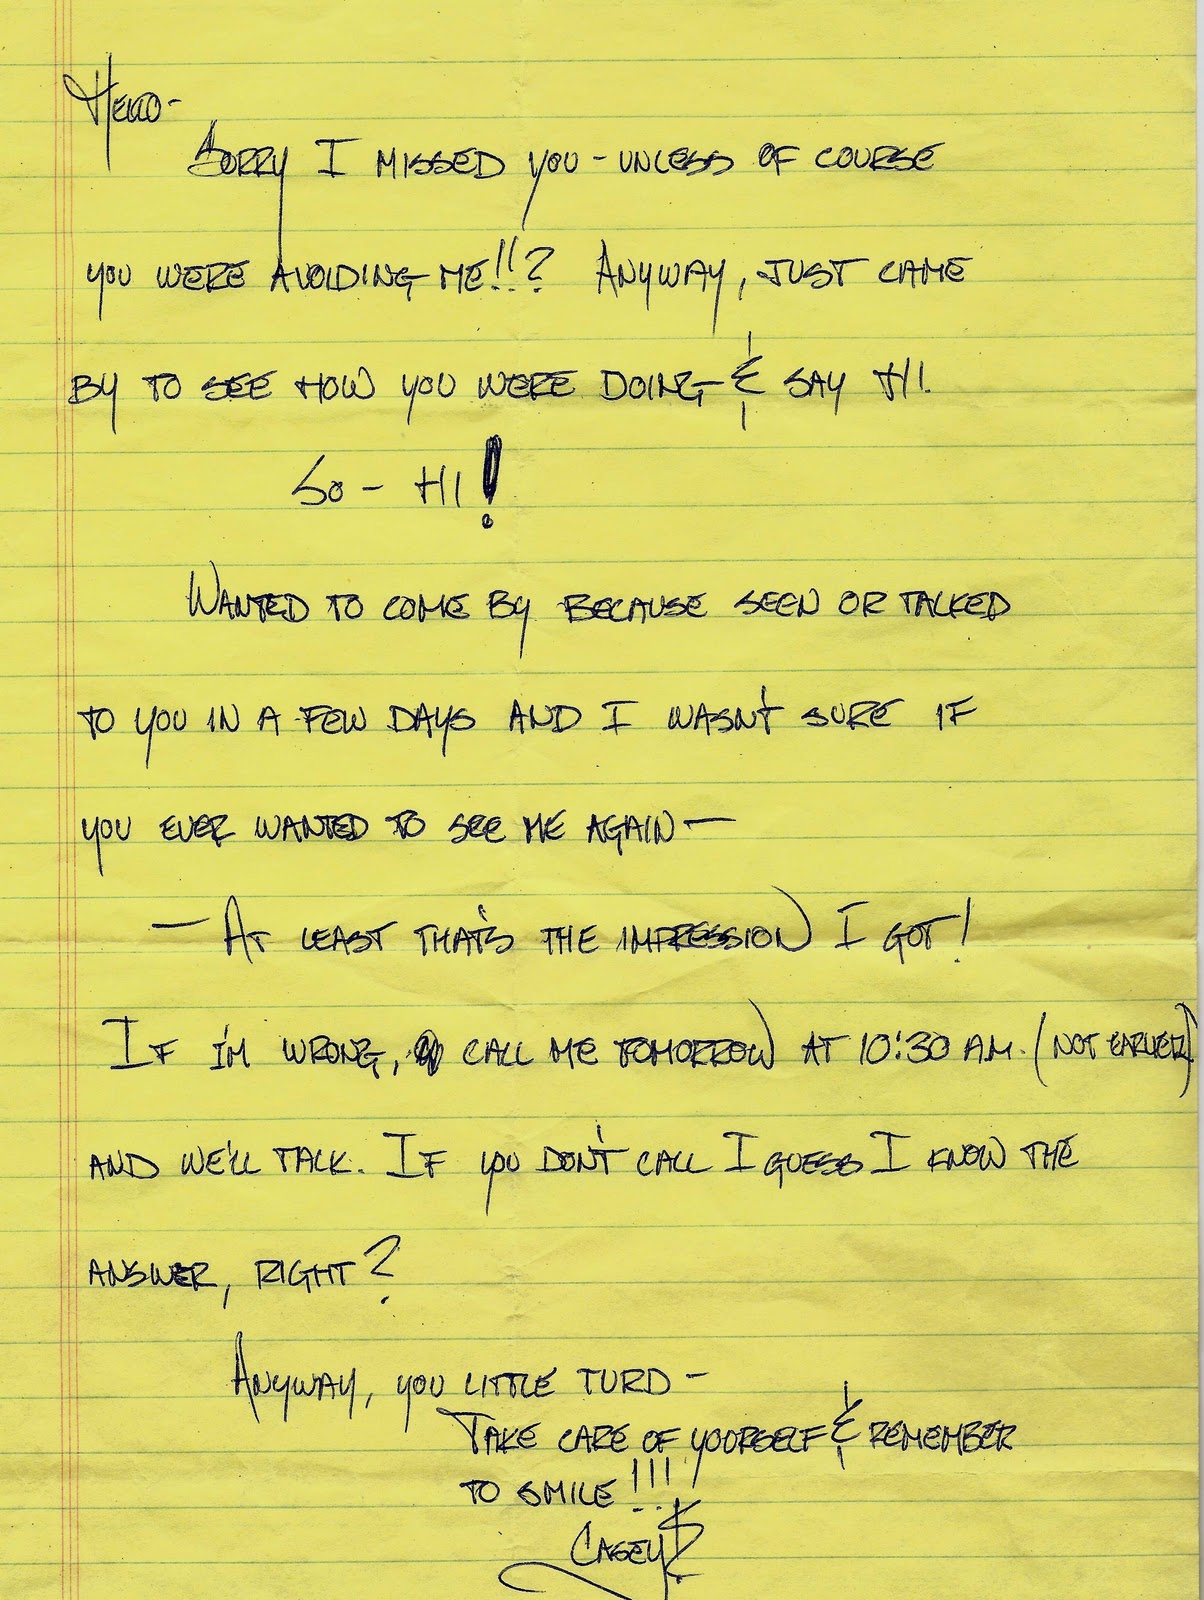 Hello-
Sorry I missed you - unless of course
you were avoiding me!!? Anyway, just came
by to see how you were doing & say hi.
So - Hi!
Wanted to come by because seen or talked
to you in a few days and I wasn't sure if
you ever wanted to see me again -
- At least that's the impression I got!
If I'm wrong, call me tomorrow at 10:30 A.M. (not earlier)
and we'll talk. If you don't call I guess I know the
answer, right?
Anyway, you little turd -
Take care of yourself & remember
to smile!!!
Casey